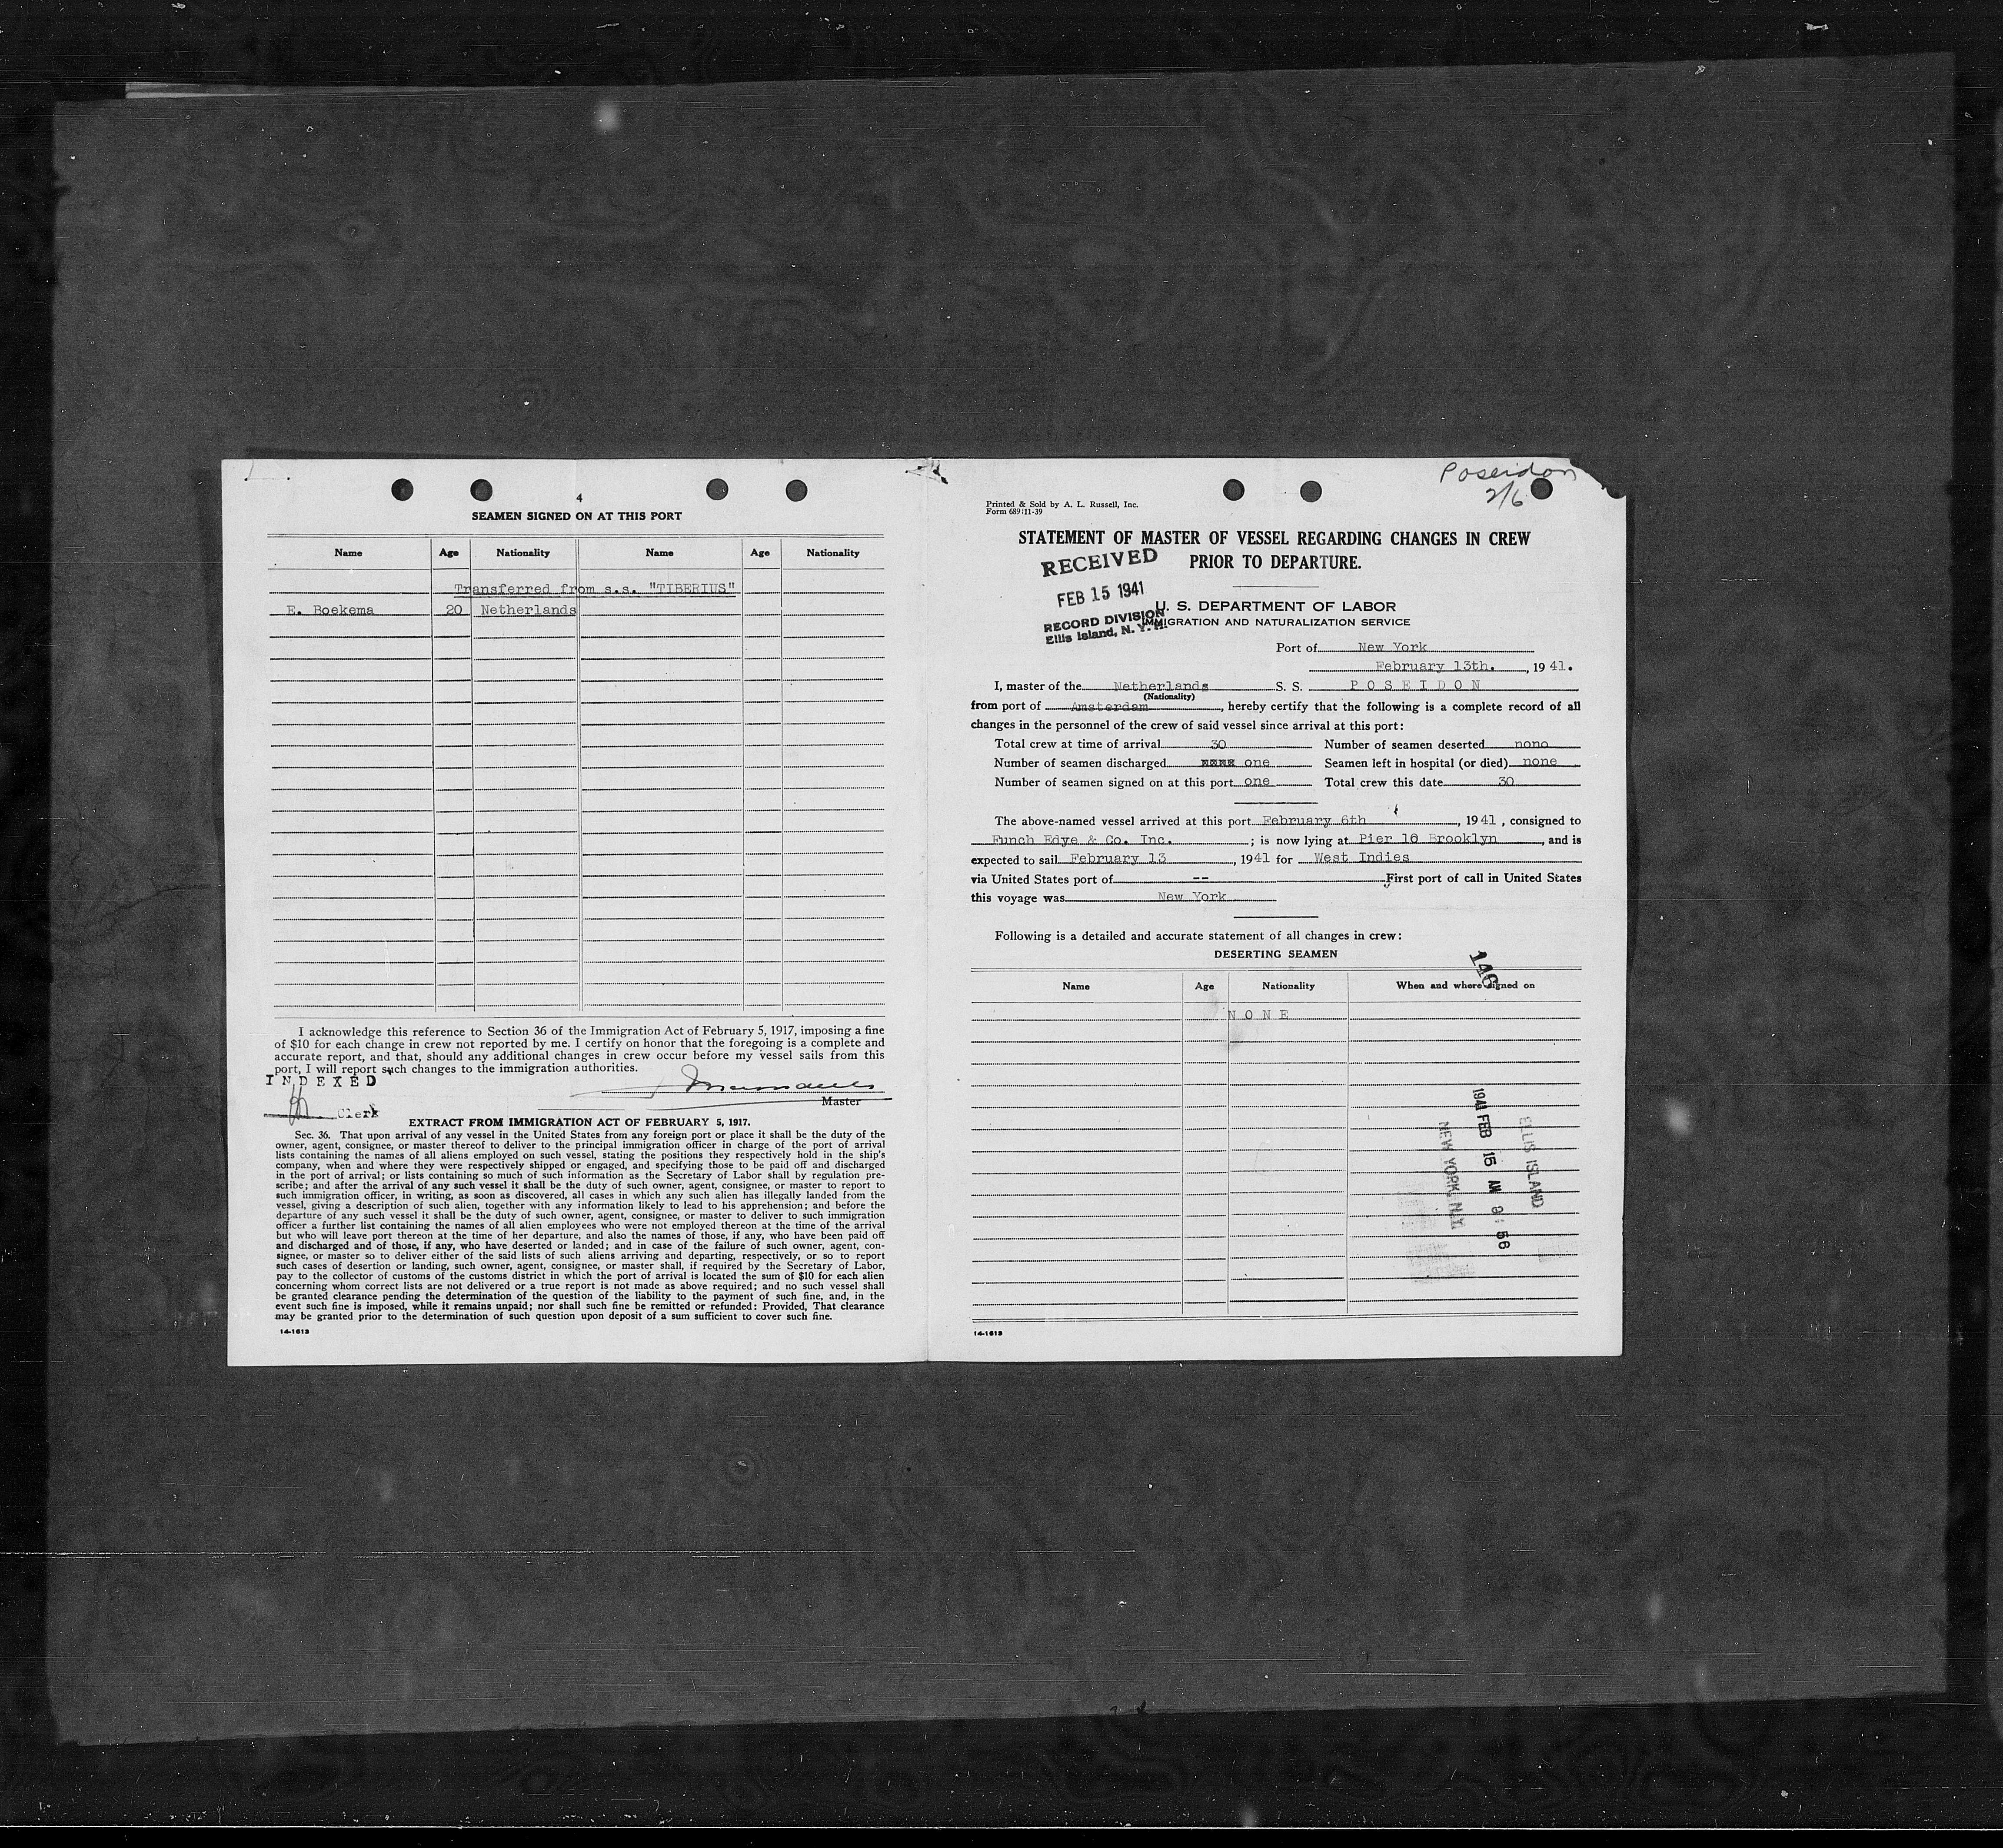 4
SEAMEN SIGNED ON AT THIS PORT
Name Age Nationality Name Age Nationality
Transferred from s.s. "TIBERIUS"
E. Boekema 20 Netherlands
I acknowledge this reference to Section 36 of the Immigration Act of February 5, 1917, imposing a fine
of $10 for each change in crew not reported by me. I certify on honor that the foregoing is a complete and
accurate report, and that, should any additional changes in crew occur before my vessel sails from this
port, I will report such changes to the immigration authorities.
INDEXED
Master
Clerk
EXTRACT FROM IMMIGRATION ACT OF FEBRUARY 5, 1917.
Sec. 36. That upon arrival of any vessel in the United States from any foreign port or place it shall be the duty of the
owner, agent, consignee, or master thereof to deliver to the principal immigration officer in charge of the port of arrival
lists containing the names of all aliens employed on such vessel, stating the positions they respectively hold in the ship's
company, when and where they were respectively shipped or engaged, and specifying those to be paid off and discharged
in the port of arrival; or lists containing so much of such information as the Secretary of Labor shall by regulation pre-
scribe; and after the arrival of any such vessel it shall be the duty of such owner, agent, consignee, or master to report to
such immigration officer, in writing, as soon as discovered, all cases in which any such alien has illegally landed from the
vessel, giving a description of such alien, together with any information likely to lead to his apprehension; and before the
departure of any such vessel it shall be the duty of such owner, agent, consignee, or master to deliver to such immigration
officer a further list containing the names of all alien employees who were not employed thereon at the time of the arrival
but who will leave port thereon at the time of her departure, and also the names of those, if any, who have been paid off
and discharged and of those, if any, who have deserted or landed; and in case of the failure of such owner, agent, con-
signee, or master so to deliver either of the said lists of such aliens arriving and departing, respectively, or so to report
such cases of desertion or landing, such owner, agent, consignee, or master shall, if required by the Secretary of Labor,
pay to the collector of customs of the customs district in which the port of arrival is located the sum of $10 for each alien
concerning whom correct lists are not delivered or a true report is not made as above required; and no such vessel shall
be granted clearance pending the determination of the question of the liability to the payment of such fine, and, in the
event such fine is imposed, while it remains unpaid; nor shall such fine be remitted or refunded: Provided, That clearance
may be granted prior to the determination of such question upon deposit of a sum sufficient to cover such fine.
14-1613
Poseidon
2/6
Printed & Sold by A. L. Russell, Inc.
Form 689:11-39
STATEMENT OF MASTER OF VESSEL REGARDING CHANGES IN CREW
PRIOR TO DEPARTURE.
RECEIVED
FEB 15 1941
RECORD DIVISION
Ellis Island, N. Y. H.
U. S. DEPARTMENT OF LABOR
IMMIGRATION AND NATURALIZATION SERVICE
Port of New York
February 13th. , 1941.
I, master of the Netherlands S. S. POSEIDON
(Nationality)
from port of Amsterdam , hereby certify that the following is a complete record of all
changes in the personnel of the crew of said vessel since arrival at this port:
Total crew at time of arrival 30 Number of seamen deserted none
Number of seamen discharged one Seamen left in hospital (or died) none
Number of seamen signed on at this port one Total crew this date 30
The above-named vessel arrived at this port February 6th , 1941 , consigned to
Funch Edye & Co. Inc. ; is now lying at Pier 16 Brooklyn , and is
expected to sail February 13 , 1941 for West Indies
via United States port of -- First port of call in United States
this voyage was New York
Following is a detailed and accurate statement of all changes in crew:
DESERTING SEAMEN
146
Name Age Nationality When and where signed on
NONE
ELLIS ISLAND
1941 FEB 15 AM 9:56
NEW YORK, N.Y.
14-1613